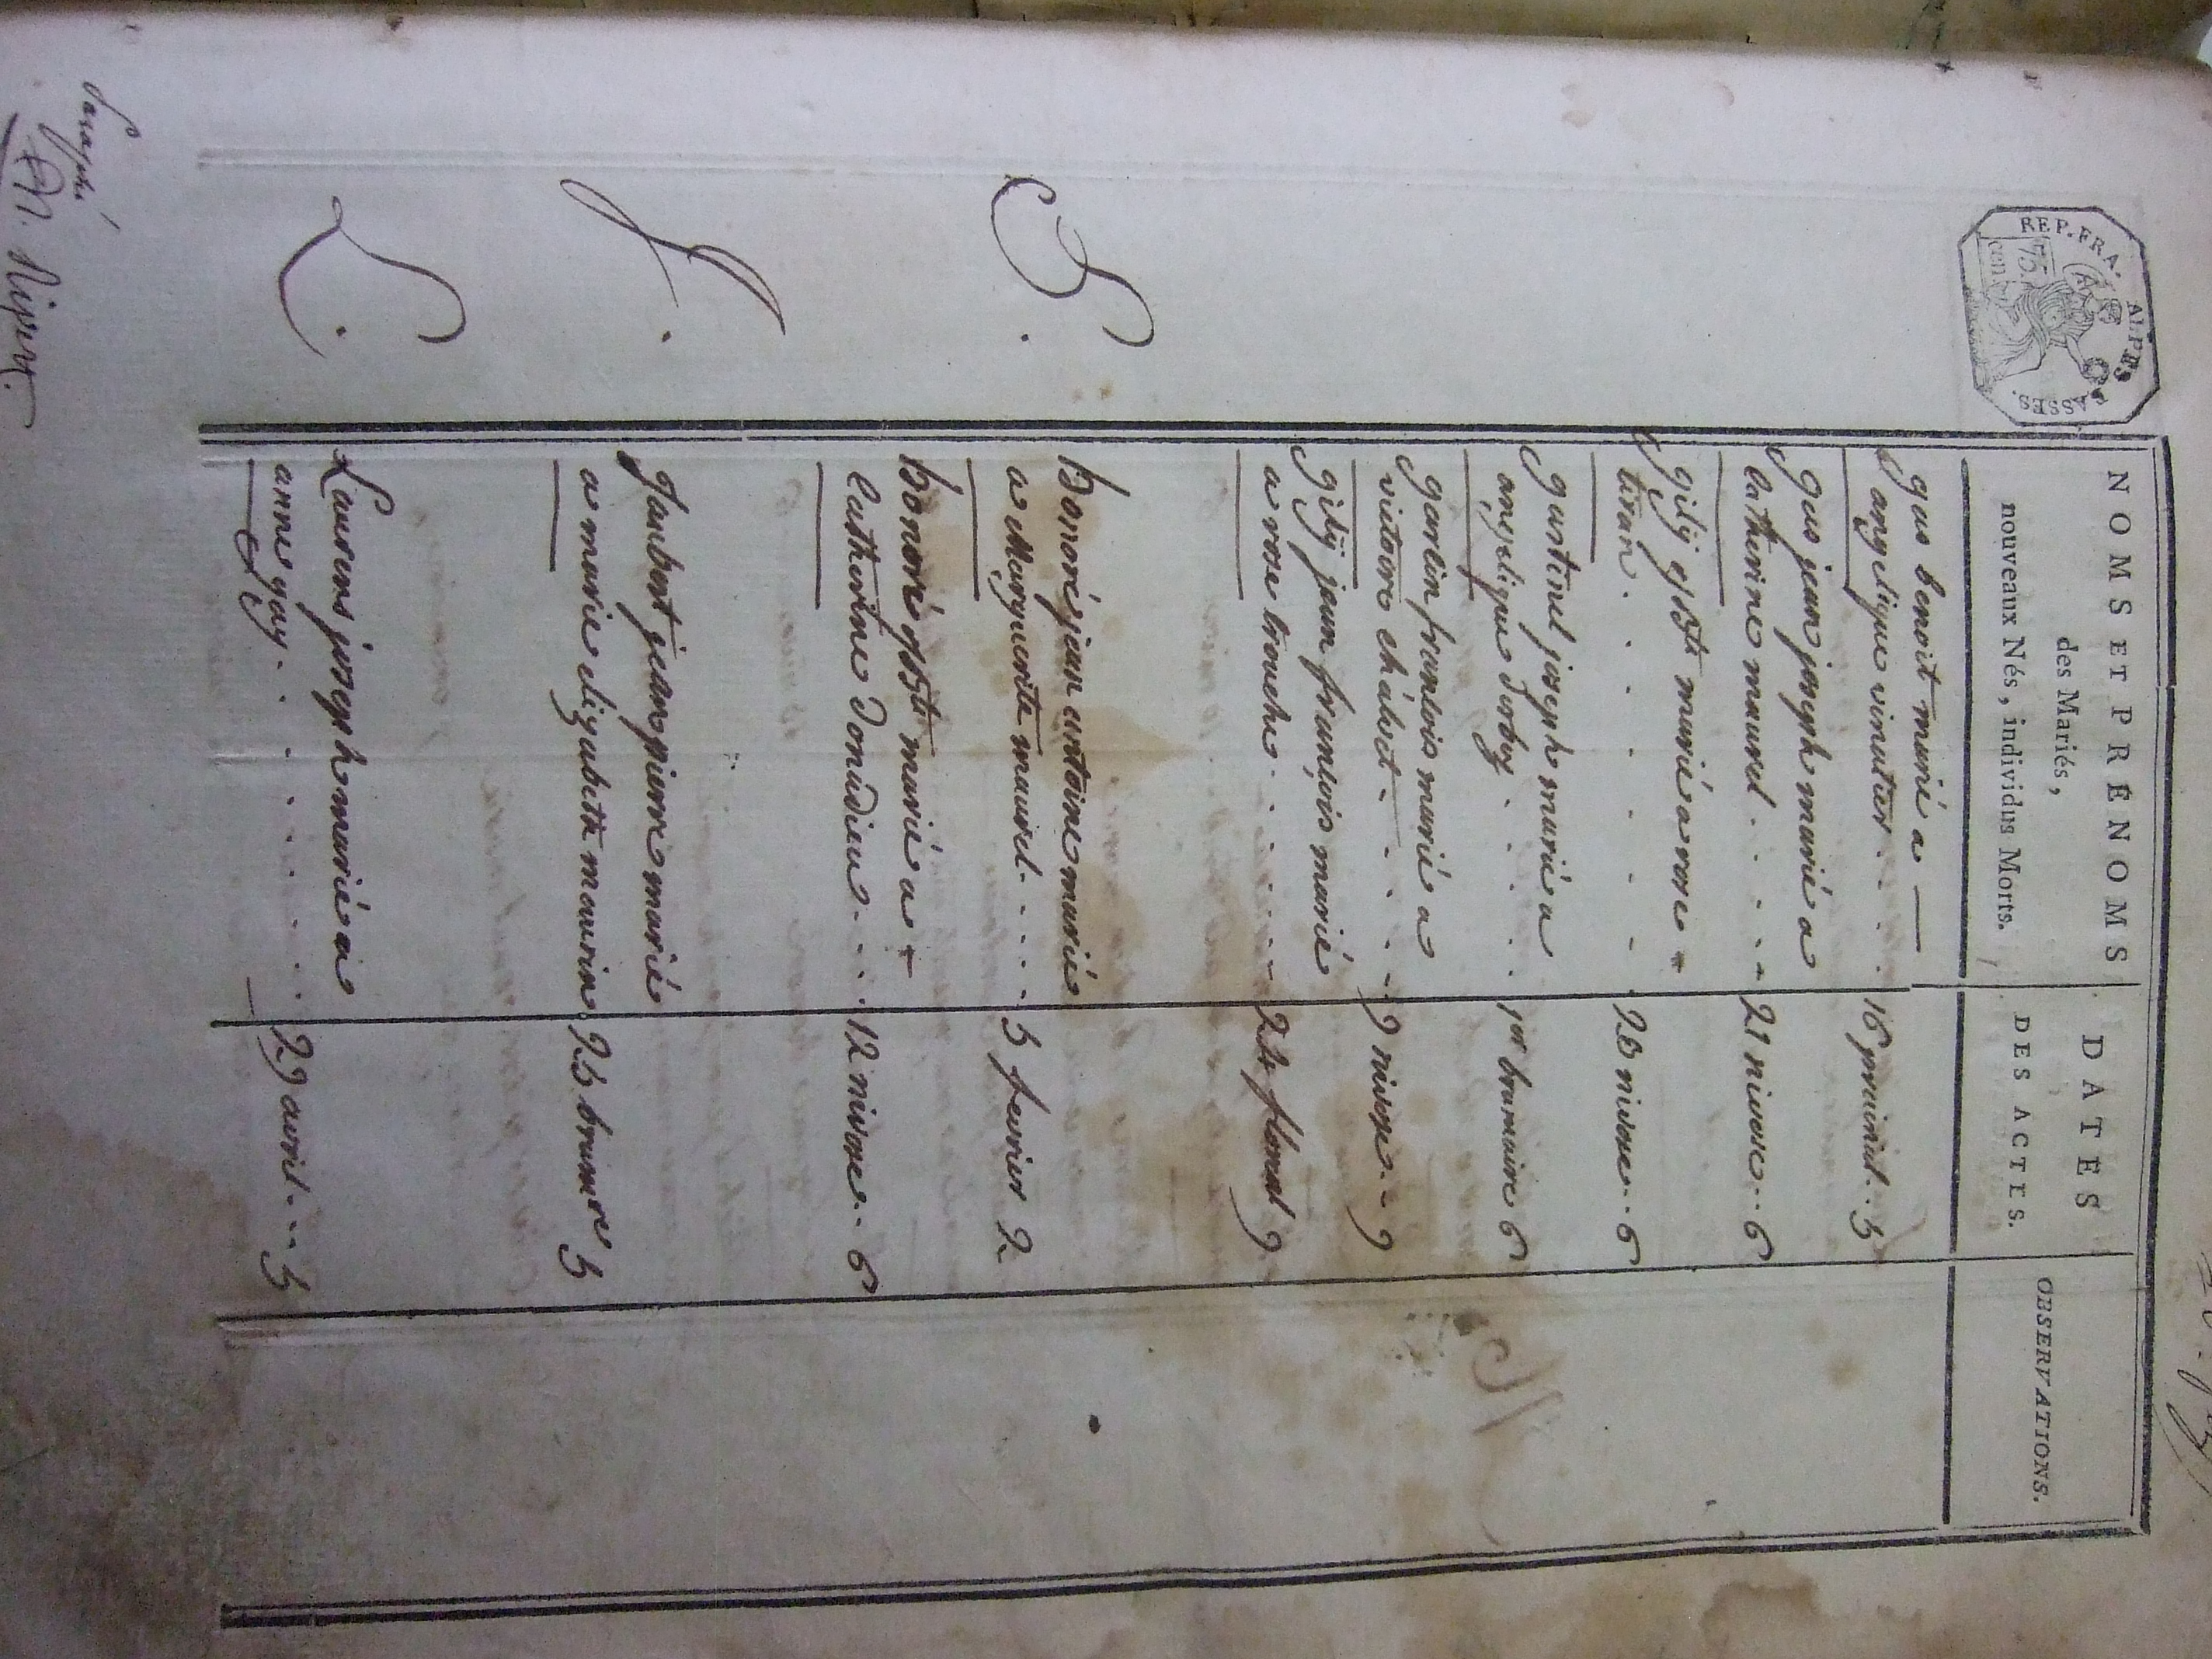 REP. FRA. ALPES BASSES.
75 cen.
NOMS ET PRÉNOMS
des Mariés,
nouveaux Nés, individus Morts.
DATES
DES ACTES.
OBSERVATIONS.
gas benoit marié a —
angelique vinatier . . . 16 prairial . . 5
gas jean joseph marié a
catherine maurel . . . . 21 nivose . . 6
marié a rose =
tiran . . . . . . 28 nivose . . 6
gastinel joseph marié a
angelique . . . . 1er brumaire 6
garcin francois marié a
victoire chabot . . . . 9 nivose . . 9
gilij jean francois marié
a rose trouche . . . . . . 24 floreal 9
honoré jean antoine marié
a Marguerite maurel . . . . 5 fevrier 2
honoré marié a =
catherine donnadieu . . . 12 nivose . . 6
J.
Jaubert jean pierre marié
a marie elizabeth maurin 25 brumre 5
L.
Laurens joseph marié a
anne gay . . . . . . . 29 avril . . . 5
Paraphé